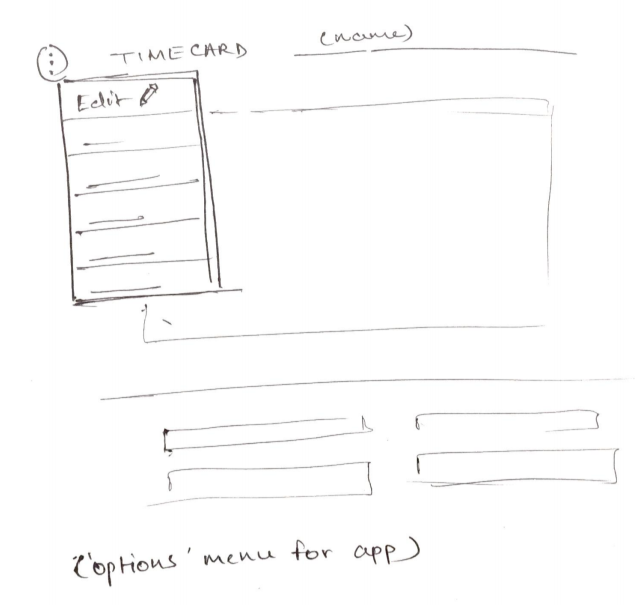 TIMECARD (name)
Edit
('options' menu for app)